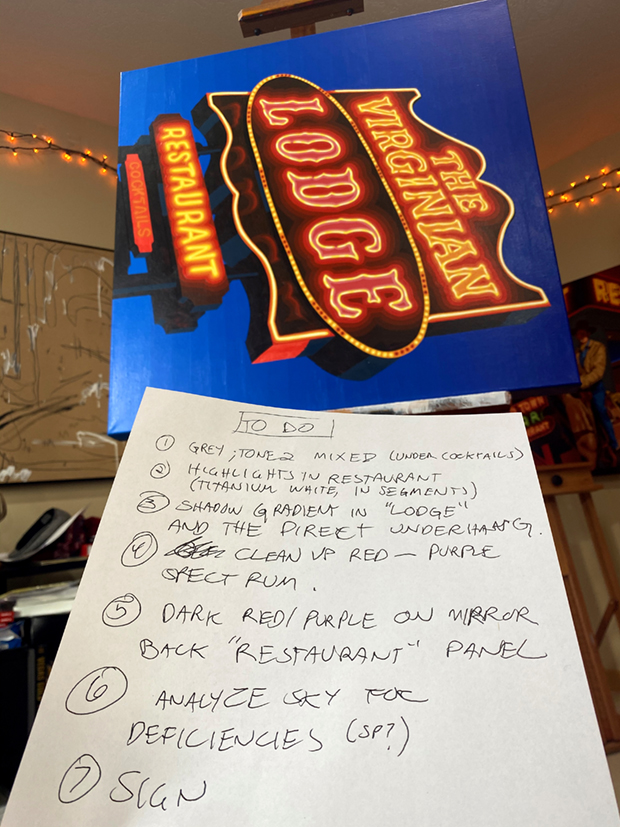 THE
VIRGINIAN
LODGE
RESTAURANT
COCKTAILS
RE
TO DO
1 GREY; TONE 2 MIXED (UNDER COCKTAILS)
2 HIGHLIGHTS IN RESTAURANT
(TITANIUM WHITE, IN SEGMENTS)
3 SHADOW GRADIENT IN "LODGE"
AND THE DIREKT UNDERHANG.
4 CLEAN UP RED — PURPLE
SPECTRUM.
5 DARK RED/PURPLE ON MIRROR
BACK "RESTAURANT" PANEL
6 ANALYZE SKY FOR
DEFICIENCIES (SP?)
7 SIGN